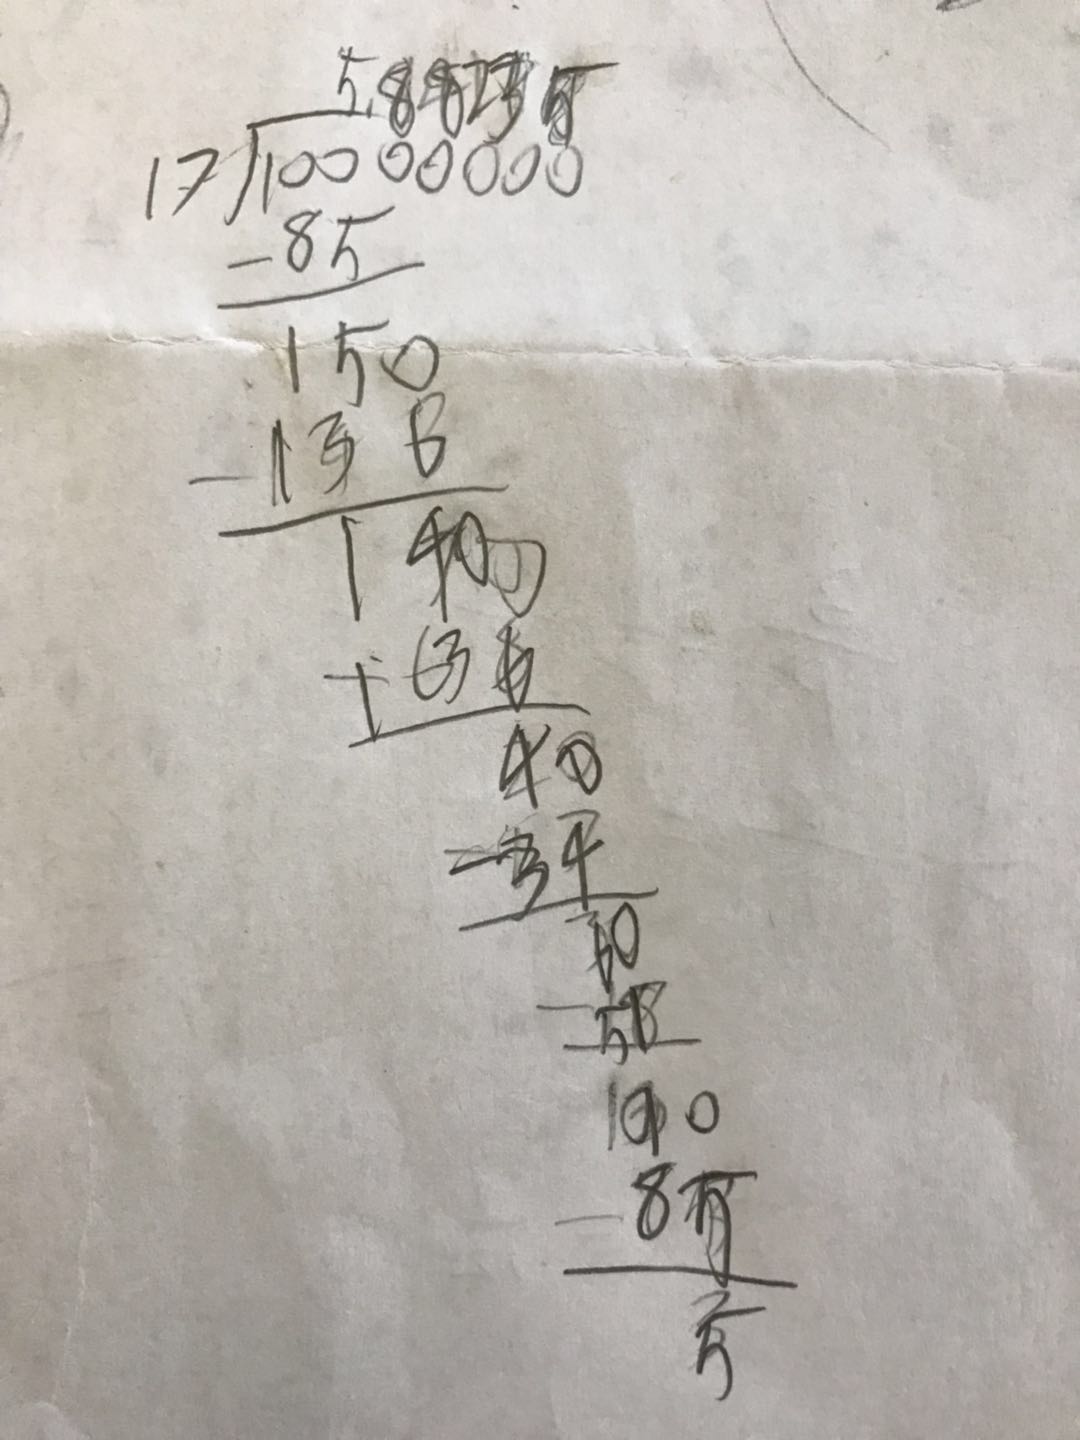 5.88235
17)10000000
-85
150
-136
140
136
40
-34
60
-5
100
-85
5